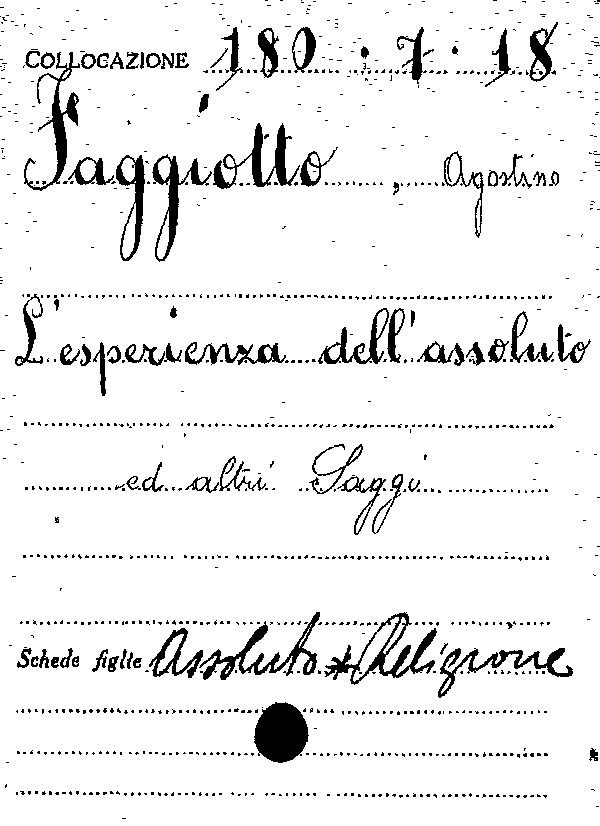 COLLOCAZIONE 180 · 7 · 18
Faggiotto, Agostino
L'esperienza dell'assoluto
ed altri Saggi
Schede figlie Assoluto * Religione